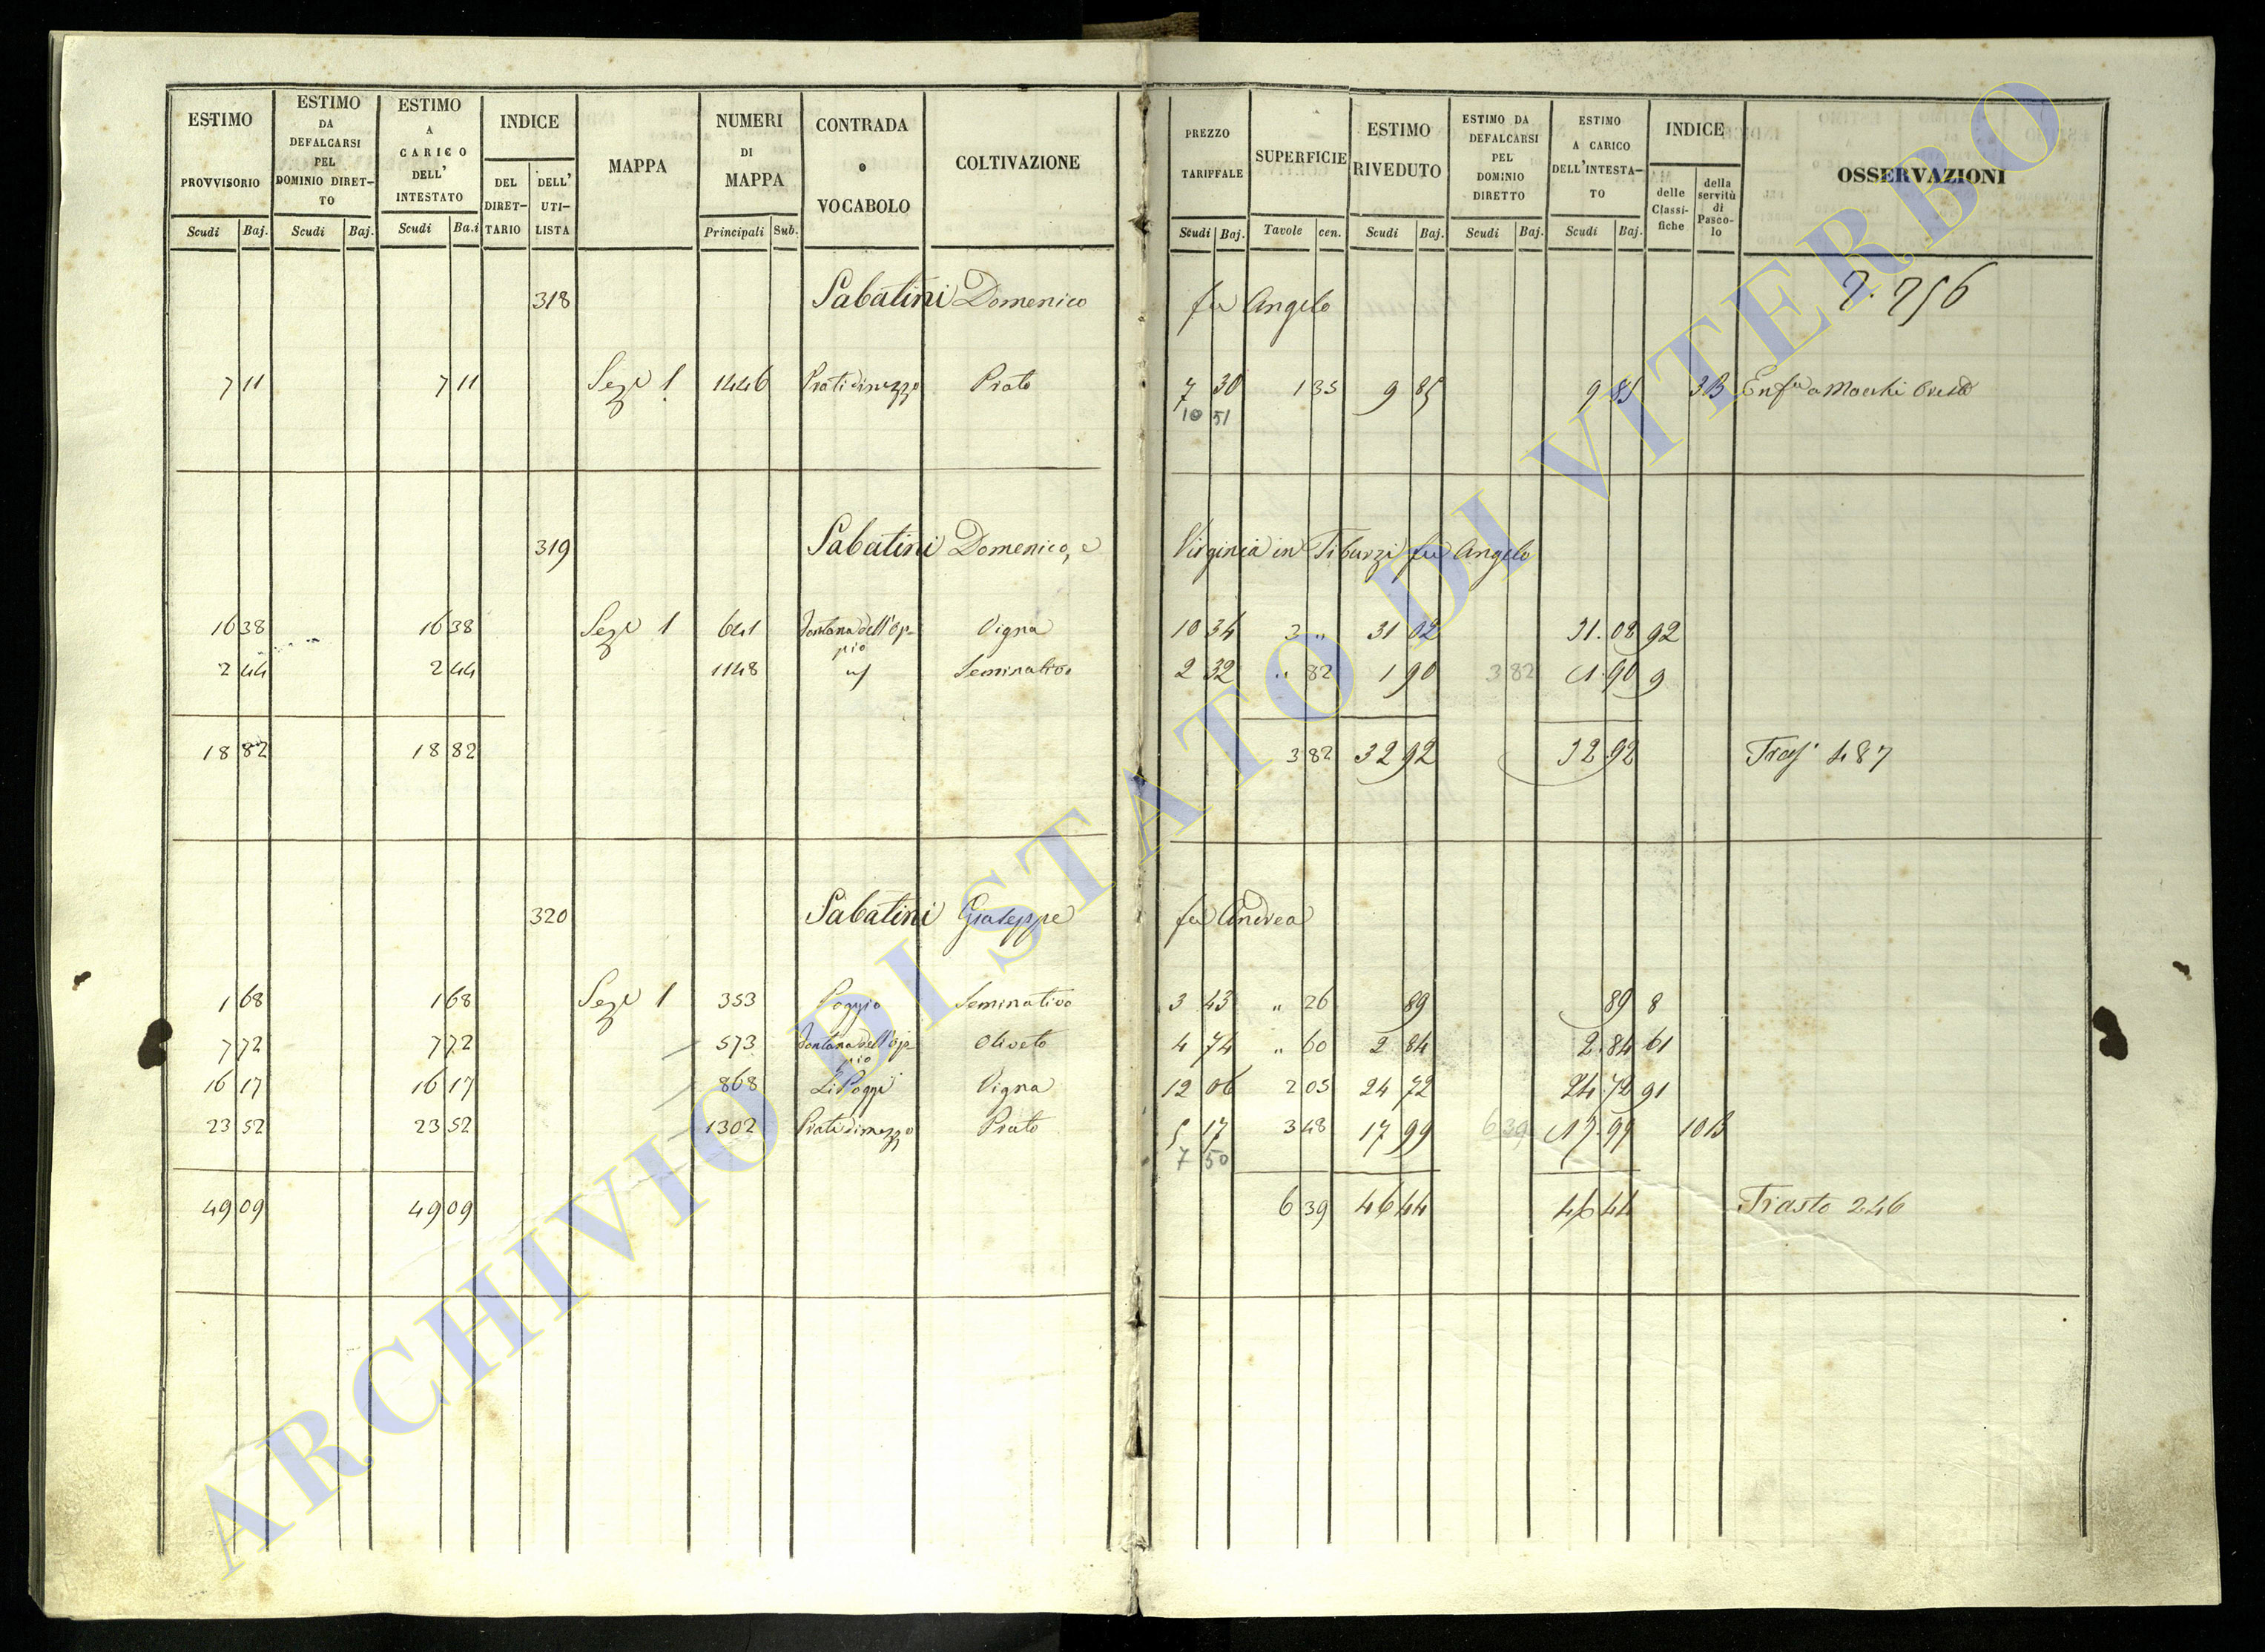 ESTIMO PROVVISORIO Scudi Baj. ESTIMO DA DEFALCARSI PEL DOMINIO DIRET-TO Scudi Baj. ESTIMO A CARICO DELL' INTESTATO Scudi Ba.i INDICE DEL DIRET-TARIO DELL' UTI-LISTA MAPPA NUMERI DI MAPPA Principali Sub. CONTRADA o VOCABOLO COLTIVAZIONE PREZZO TARIFFALE Scudi Baj. SUPERFICIE Tavole cen. ESTIMO RIVEDUTO Scudi Baj. ESTIMO DA DEFALCARSI PEL DOMINIO DIRETTO Scudi Baj. ESTIMO A CARICO DELL'INTESTA-TO Scudi Baj. INDICE delle Classi-fiche della servitù di Pasco-lo OSSERVAZIONI
318 Sabatini Domenico fu Angelo
7 11 7 11 Seze 1 1446 Prati di mezzo Prato 7 30 1 35 9 85 9 85 3B
10 51
319 Sabatini Domenico, e Virginia in Tiburzi fu Angelo
16 38 16 38 Seze 1 641 Fontana dell'Op- Vigna 10 34 3 " 31 02 31.02 92
pio
2 44 2 44 1148 Seminativo 2 32 " 82 1 90 3 82 1.90 9
18 82 18 82 3 82 32 92 32.92 Trasf 487
320 Sabatini Giuseppe fu Andrea
1 68 1 68 Seze 1 353 Poggio Seminativo 3 43 " 26 89 89 8
7 72 7 72 573 Fontana dell'Op Oliveto 4 74 " 60 2 84 2.84 61
pio
16 17 16 17 868 Li Poggi Vigna 12 06 2 05 24 72 24.72 91
23 52 23 52 1302 Prati di mezzo Prato 5 17 3 48 17 99 6 39 17.99 10B
7 50
49 09 49 09 6 39 46 44 46 44 Trasto 246
ARCHIVIO DI STATO DI VITERBO